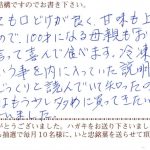 結構ですのでお書き下さい。
ても口どけが良く、甘味も上
ので、100才になる母親もお
言って喜んで食べます。冷凍
いう事を内に入っていた説明
じっくりと読んでいて知ったの
はもう少し多めに買ってきたい
いました。
がとうございました。ハガキをお送り下さいまし
抽選で毎月10名様に、いと忠銘菓を送らせて頂